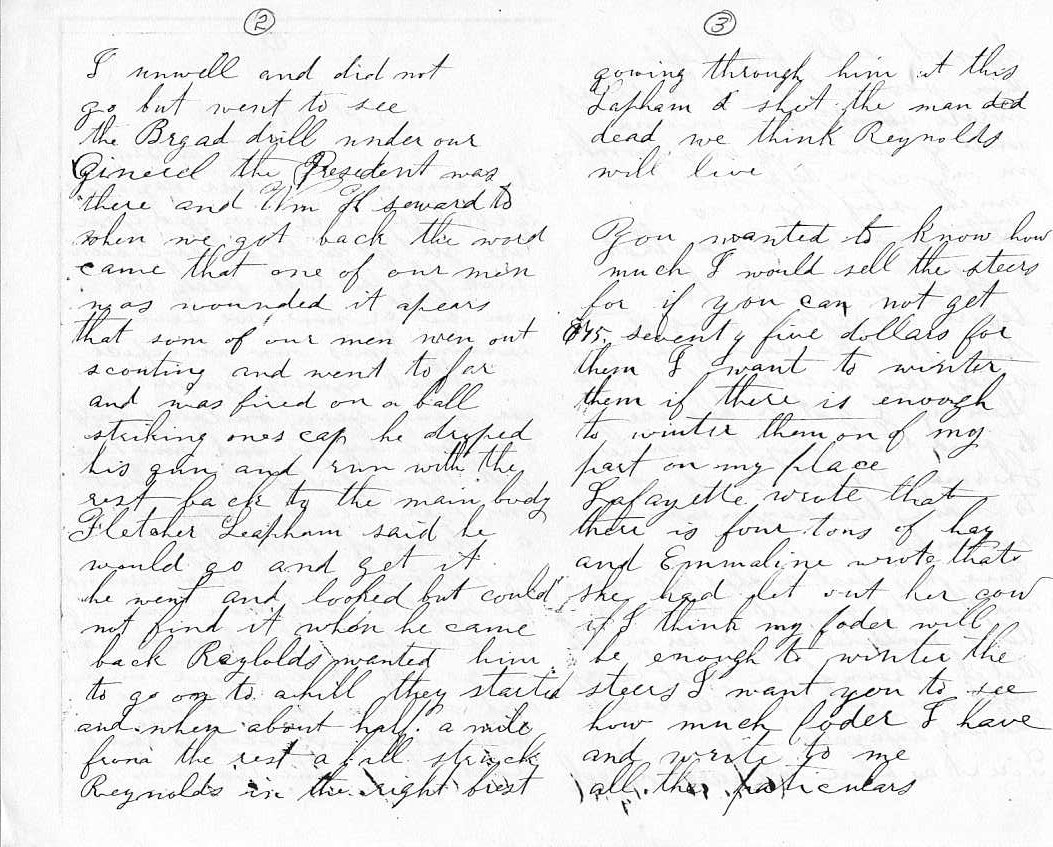 2
I unwell and did not
go but went to see
the Brgad drill under our
Ginerel the President was
there and Wm H seward to
when we got back the word
came that one of our men
was wounded it apears
that som of our men wen out
scouting and went to far
and was fired on a ball
striking ones cap he droped
his gun and run with the
rest back to the main body
Fletcher Leapham said he
would go and get it
he went and looked but could
not find it when he came
back Reylolds wanted him
to go on to a hill they started
and when about half a mile
from the rest a ball struck
Reynolds in the right brest
3
gowing through him at this
Lapham shot the man ded
dead we think Reynolds
will live
You wanted to know how
much I would sell the steers
for if you can not get
$75. seventy five dollars for
them I want to winter
them if there is enough
to winter them on of my
part on my place
Lafayette wrote that
there is four tons of hay
and Emmaline wrote that
she had let out her cow
if I think my foder will
be enough to winter the
steers I want you to see
how much foder I have
and write to me
all the particulars